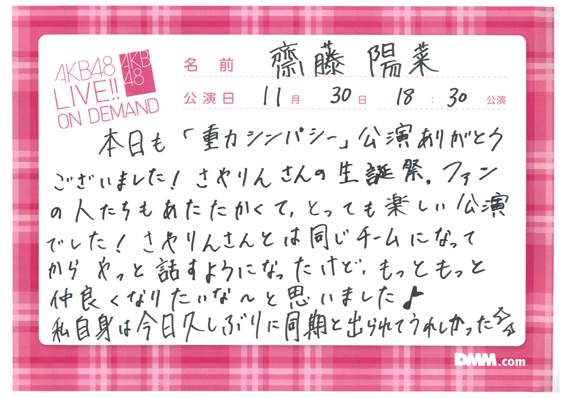 AKB48
LIVE!!
ON DEMAND
AKB
48
名前 齋藤 陽菜
公演日 11月 30日 18:30公演
本日も「重力シンパシー」公演ありがとう
ございました!さやりんさんの生誕祭。ファン
の人たちもあたたかくて、とっても楽しい公演
でした!さやりんさんとは同じチームになって
から やっと話すようになったけど、もっともっと
仲良くなりたいな〜と思いました♪
私自身は今日久しぶりに同期と出られてうれしかった☆☆
DMM.com